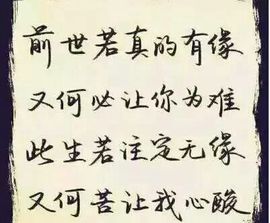 前世若真的有缘
又何必让你为难
此生若注定无缘
又何苦让我心酸